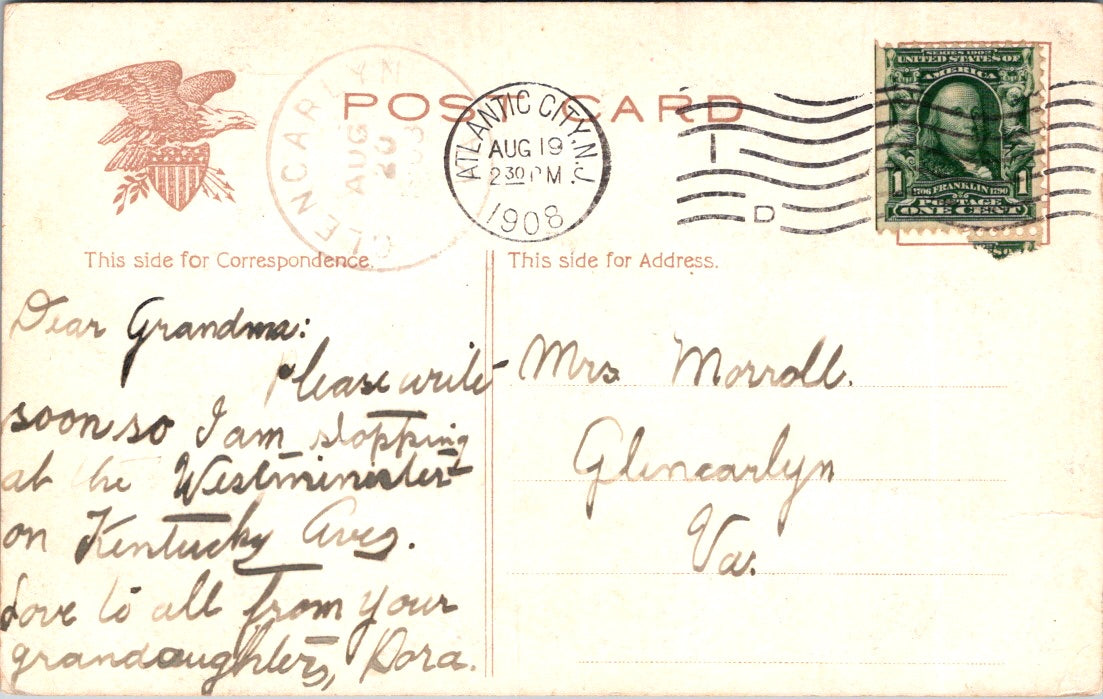 POST CARD
GLENCARLYN
AUG
20
1908
ATLANTIC CITY, N.J.
AUG 19
2 30 PM
1908
1
D
SERIES 1902
UNITED STATES OF
AMERICA
1706 FRANKLIN 1790
POSTAGE
1 ONE CENT 1
This side for Correspondence.
This side for Address.
Dear Grandma:
Please write
soon so I am stopping
at the Westminister
on Kentucky Aves.
Love to all from your
grandaughters, Dora.
Mrs Morroll.
Glencarlyn
Va.